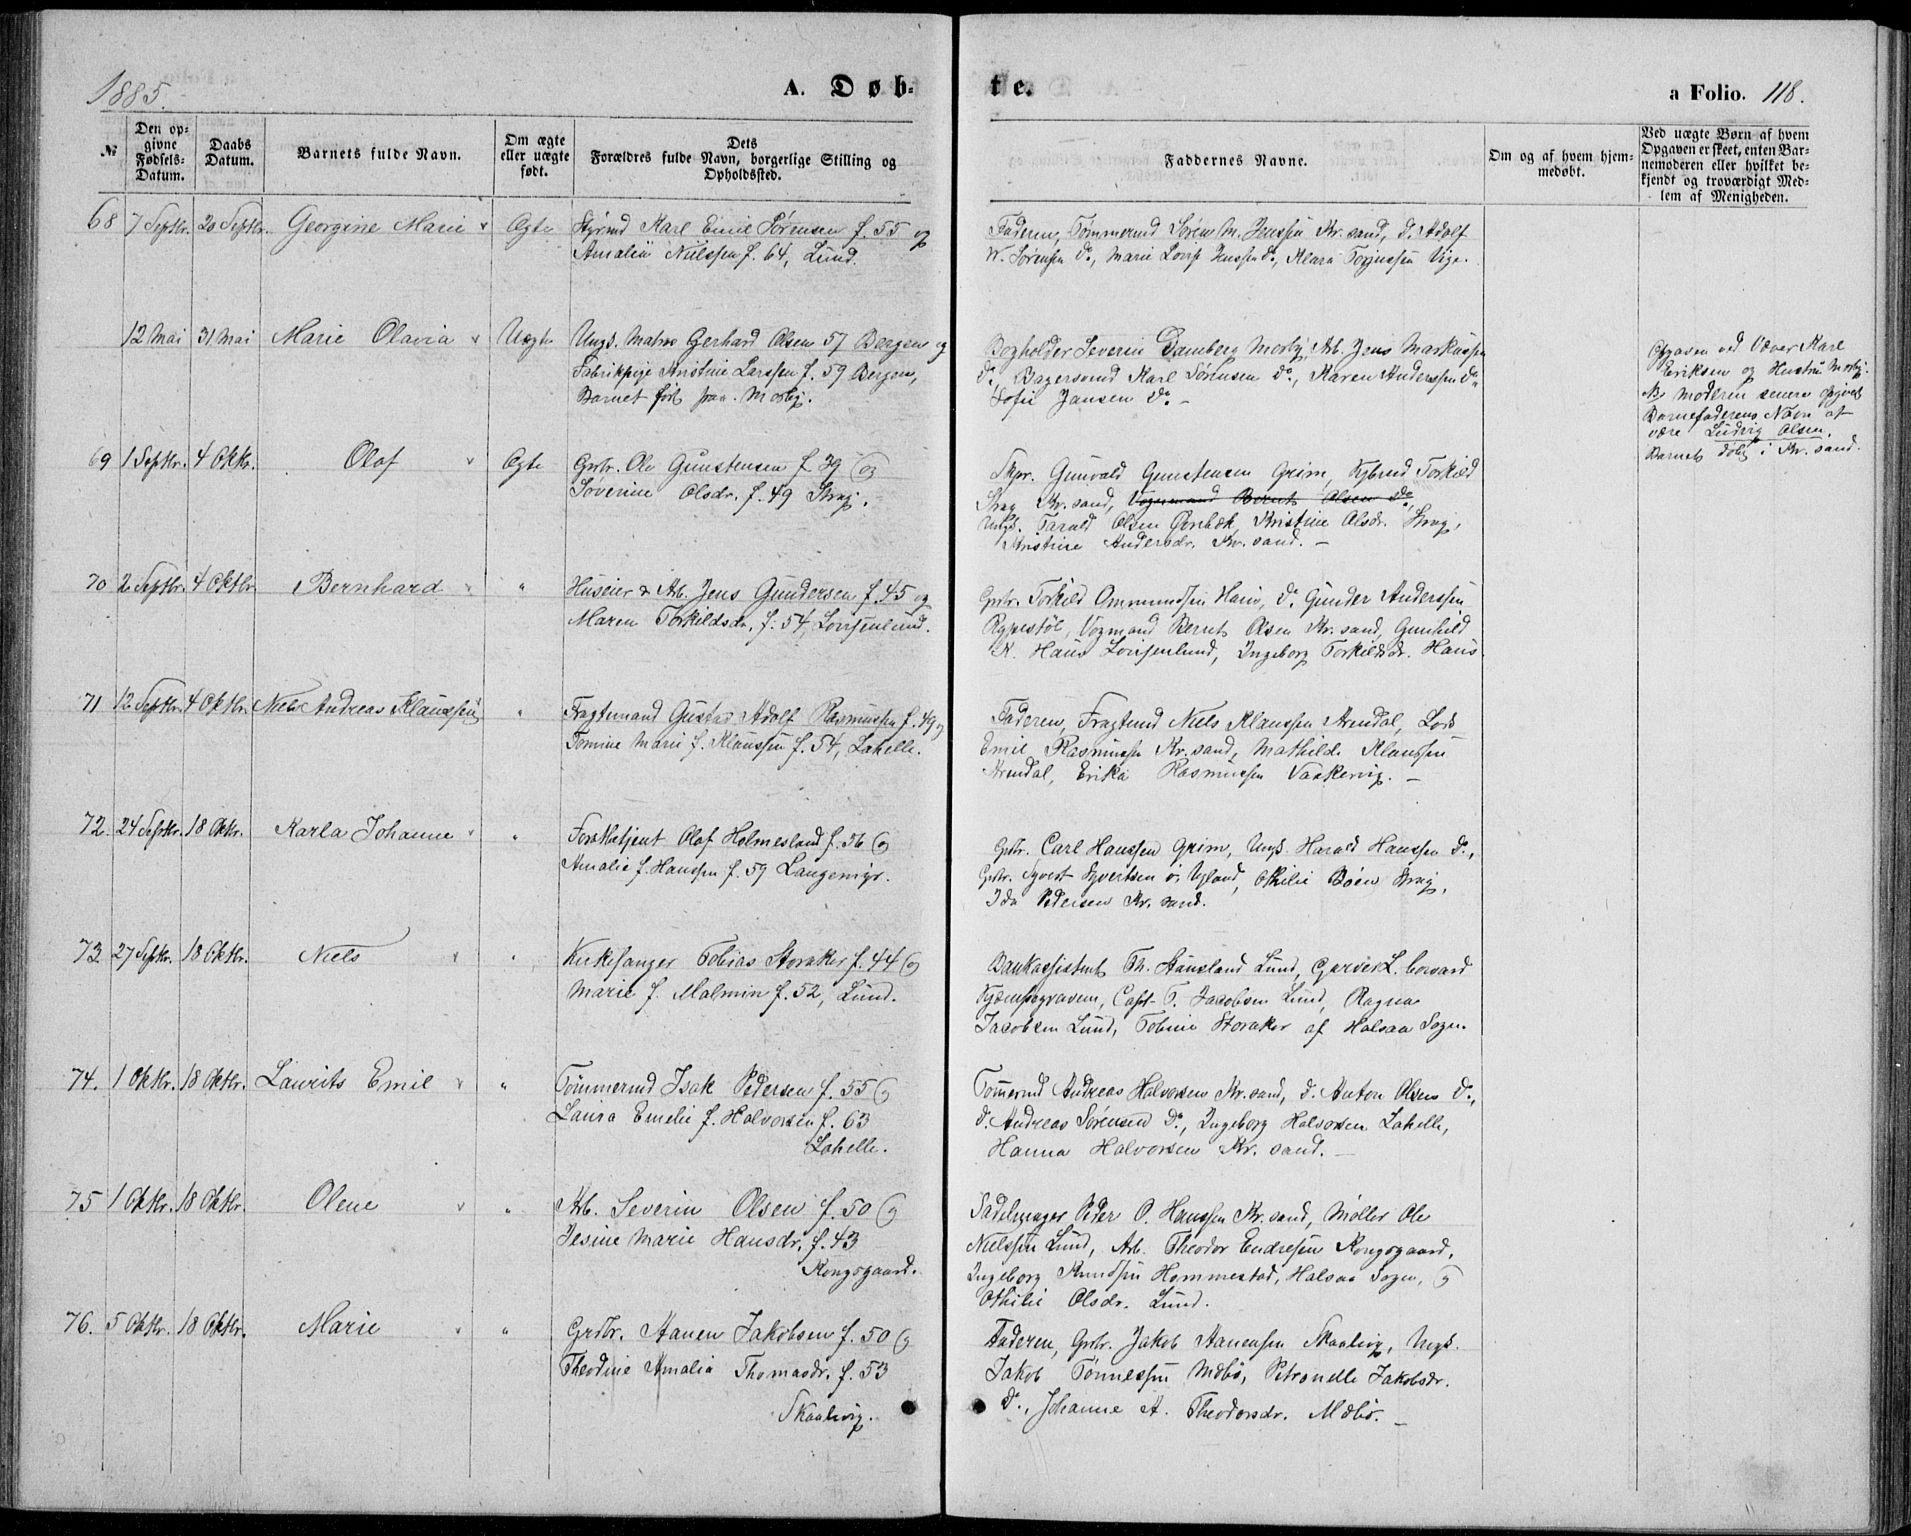 1885.
A. Døb-
te.
a Folio. 118.
№
Den op-
givne
Fødsels-
Datum.
Daabs
Datum.
Barnets fulde Navn.
Om ægte
eller uægte
født.
Dets
Forældres fulde Navn, borgerlige Stilling og
Opholdssted.
Faddernes Navne.
Om og af hvem hjem-
medøbt.
Ved uægte Børn af hvem
Opgaven er skeet, enten Bar-
nemoderen eller hvilket be-
kjendt og troværdigt Med-
lem af Menigheden.
68 7 Septbr. 20 Septbr. Georgine Marie Ægte Styrmd Karl Emil Sørensen f. 55 og
Amalie Nielssen f. 64, Lund.
Faderen, Tømmermd Søren M. Jenssen Kr.sand, do Adolf
W. Sørensen do, Marie Lovise Jenssen do, Klara Torjussen Vige.
12 Mai 31 Mai Marie Olavia Uægte Ungk. Matros Gerhard Olsen 57 Bergen og
Fabrikpige Kristine Larssen f. 59 Bergen,
Barnet født paa Mosby.
Bogholder Severin Damberg Mosby, Arb. Jens Markussen
do, Bagersvend Karl Sørensen do, Karen Anderssen do
Sofie Jansen do. –
Opgaven ved Væver Karl
Eriksen og Hustru Mosby.
NB Moderen senere opgivet
Barnefaderens Navn at
være Ludvig Olsen.
Barnet døbt i Kr.sand.
69 1 Septbr. 4 Oktbr. Olaf Ægte Grbr. Ole Gunstensen f. 39 og
Severine Olsdr. f. 49 Strag.
Skpr. Gunvald Gunstensen Grim, Torkild
Strag Kr.sand, Vognmand Bernt Olsen do,
Ungk. Tarald Olsen Øvrebæk, Kristine Olsdr. Strag,
Kristine Andersdr. Kr.sand. –
70 2 Septbr. 4 Oktbr. Bernhard " Huseier & Arb. Jens Gundersen f. 45 og
Maren Torkildsdr. f. 54, Lovisenlund.
Grbr. Torkild Ommundsen Haus, do Gunder Anderssen
Rypestøl, Vogmand Bernt Olsen Kr.sand, Gunhild
K. Haus Lovisenlund, Ingeborg Torkildsdr. Haus
71 12 Septbr. 4 Oktbr. Niels Andreas Klaussen " Fragtemand Gustav Adolf Rasmussen f. 49 og
Tomine Marie f. Klaussen f. 54, Lahelle.
Faderen, Fragtemd Niels Klaussen Arendal, Lods
Emil Rasmussen Kr.sand, Mathilde Klaussen
Arendal, Erika Rasmussen Vaakervig. –
72. 24 Septbr. 18 Oktbr. Karla Johanne " Forstbetjent Olaf Holmesland f. 56 og
Amalie f. Hanssen f. 59 Langemyr.
Grbr. Carl Hanssen Grim, Ungk. Harald Hanssen do,
Grbr. Syvert Syvertsen ø. Ugland, Othilie Bøen Strag,
Ida Pedersen Kr.sand.
73 27 Septbr. 18 Oktbr. Niels " Kirkesanger Tobias Storaker f. 44 og
Marie f. Malmin f. 52, Lund.
Bankassistent Th. Stausland Lund, Garver L.
Kjempegraven, Capt. T. Jacobsen Lund, Ragna
Jacobsen Lund, Tobine Storaker af Halsaa Sogn.
74. 1 Oktbr. 18 Oktbr. Laurits Emil " Tømmermd Isak Pedersen f. 55 og
Laura Emelie f. Halvorsen f. 63
Lahelle.
Tømermd Andreas Halvorsen Kr.sand, do Anton Olsen do,
do Andreas Sørensen do, Ingeborg Halvorsen Lahelle,
Hanna Halvorsen Kr.sand. –
75 1 Oktbr. 18 Oktbr. Olene " Arb. Severin Olsen f. 50 og
Jesine Marie Hansdr. f. 43
Kongsgaard.
Sadelmager Peder O. Hanssen Kr.sand, Møller Ole
Nielssen Lund, Arb. Theodor Endresen Kongsgaard,
Ingeborg Knudsen Hommestad, Halsaa Sogn, og
Othilie Olsdr. Lund.
76. 5 Oktbr. 18 Oktbr. Marie " Grdbr. Aanen Jakobsen f. 50 og
Theodine Amalia Thomasdr. f. 53
Skaalevig.
Faderen, Grbr. Jakob Aanensen Skaalevig, Ungk.
Jakob Tønnessen Mæbø, Petronelle Jakobsdr.
do, Johanne A. Theodorsdr. Mæbø. –